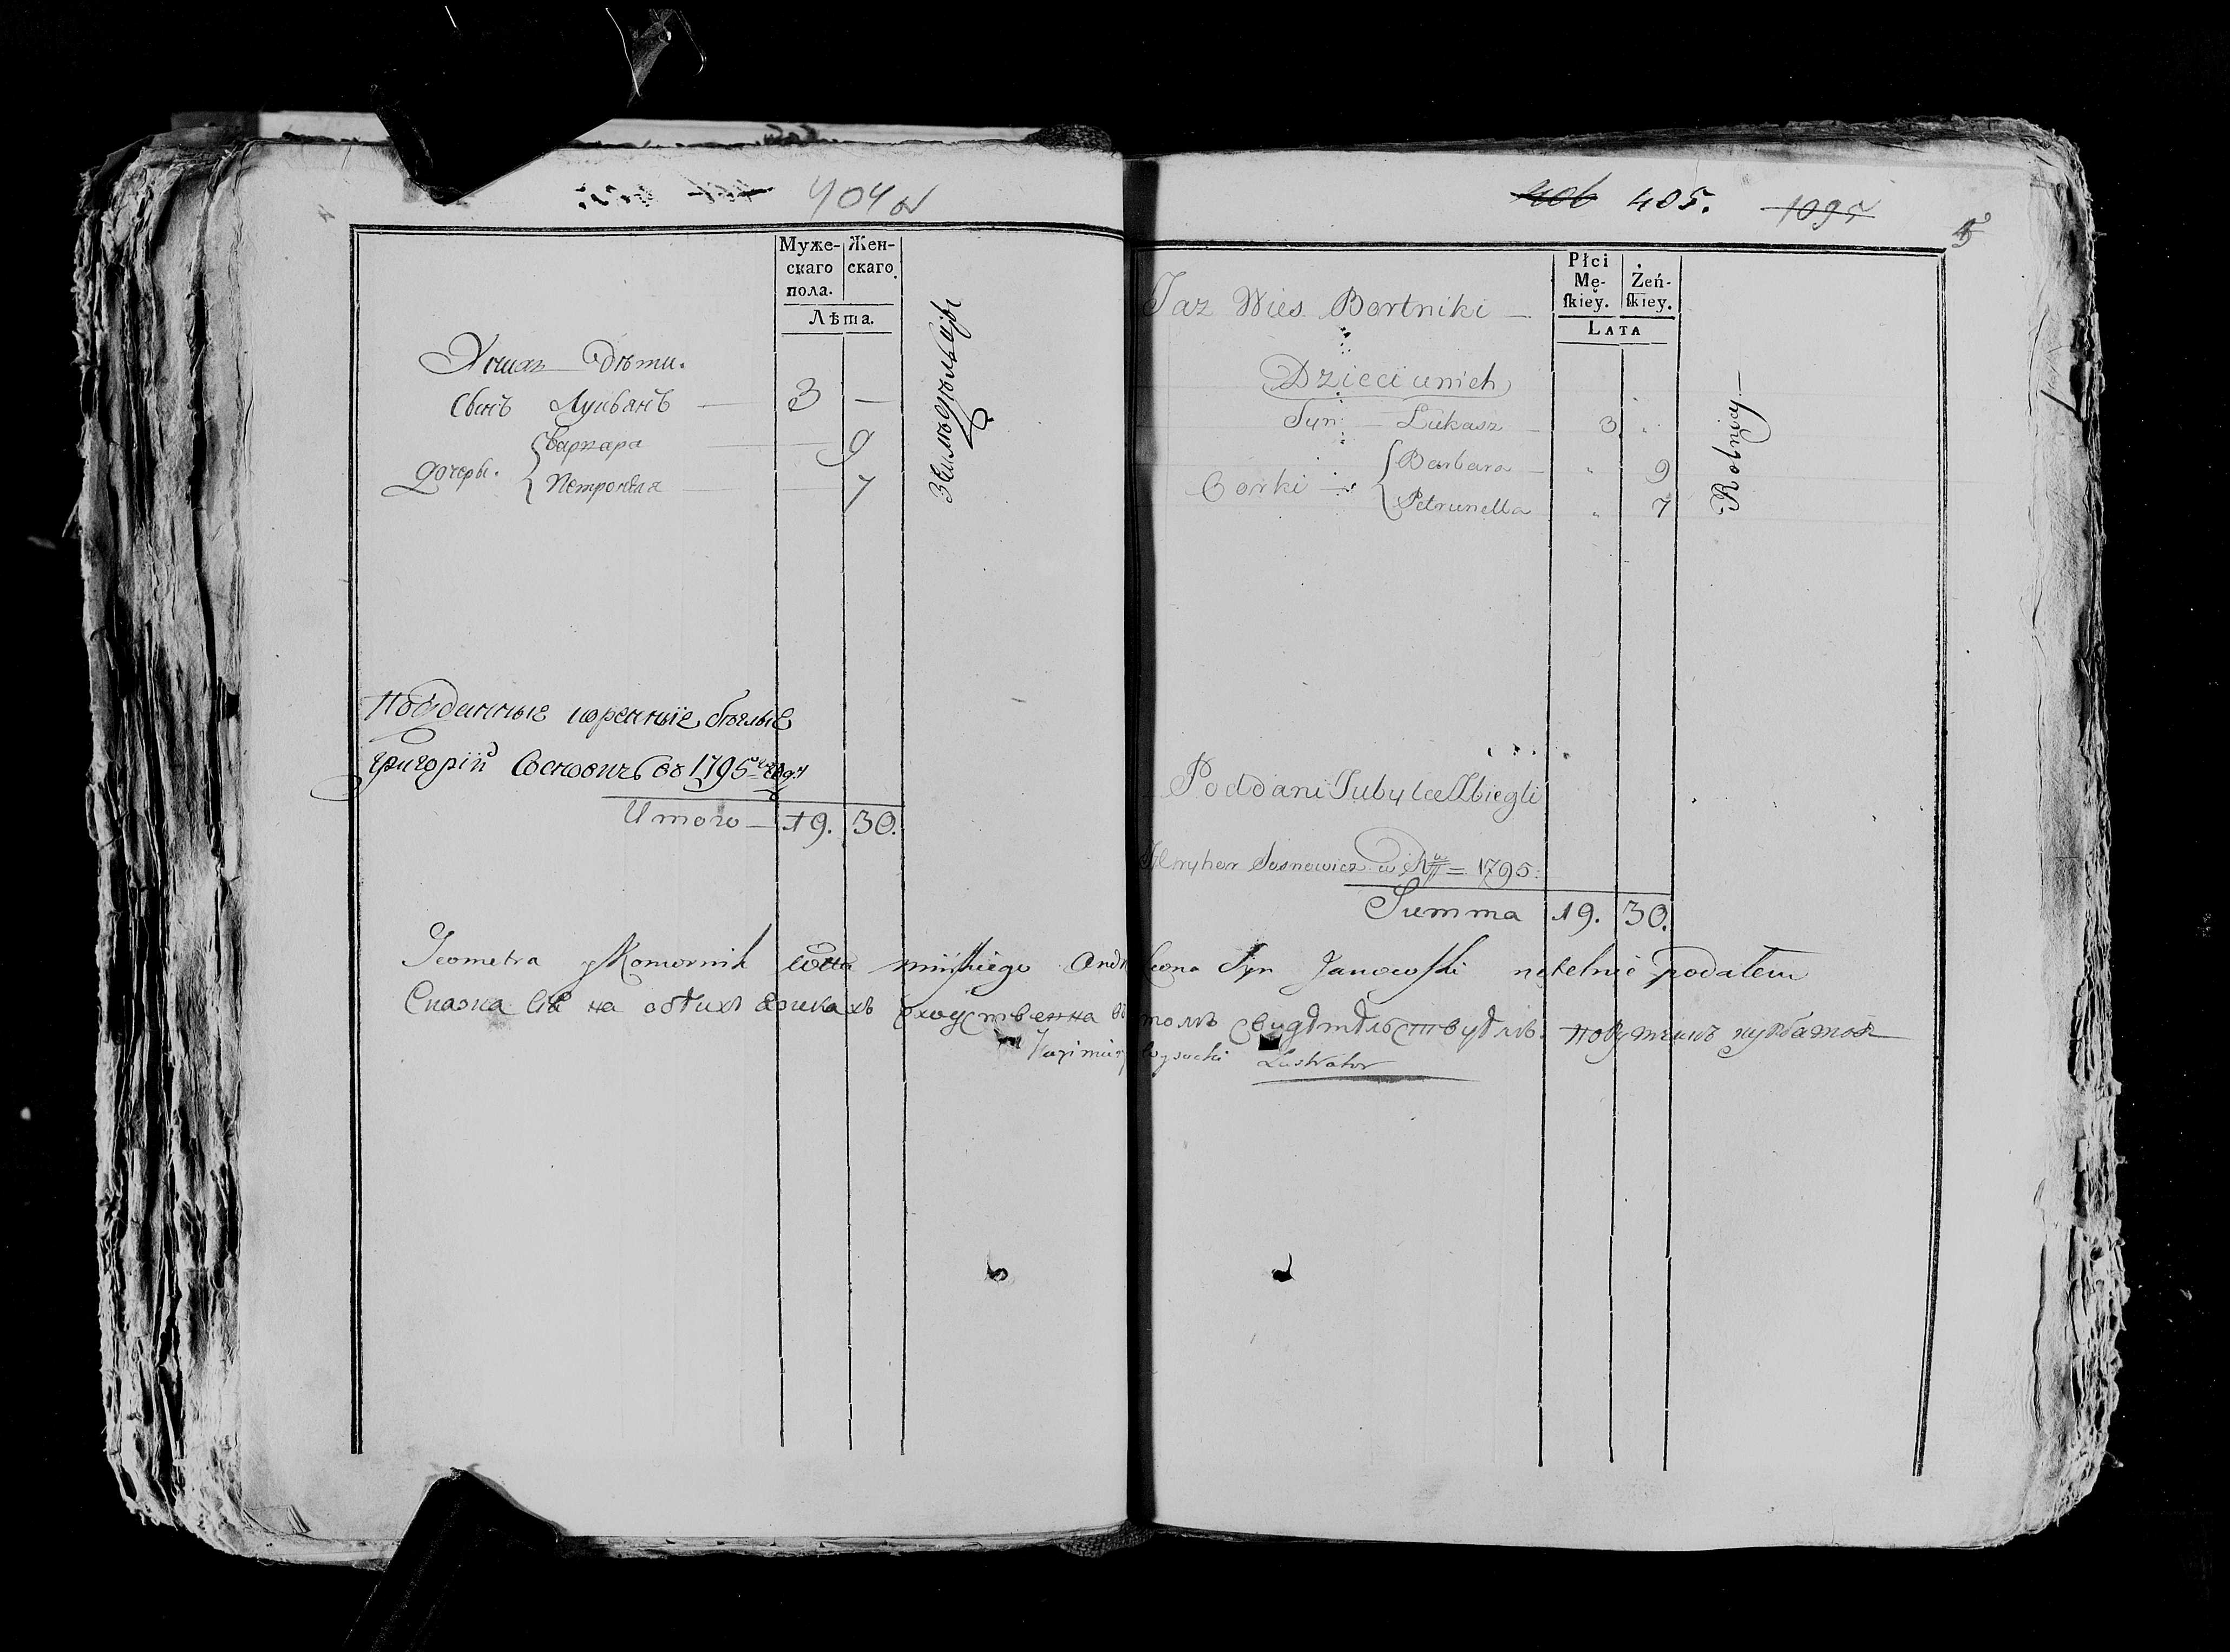 404 об
Муже-скаго пола. Жен-скаго.
Лѣта.
У нихъ Дѣти.
Сынъ Лукьянъ — 3 —
Дочеры. Варвара — 9
Петронеля — 7
Земледѣльцы
Подданные коренные беглые
Григорій Сосновичъ во 1795 году
Итого — 19. 30.
406 405. 1095
Taz Wies Bortniki —
Płci Mę-ſkiey. Żeń-ſkiey.
LATA
Dzieci unich
Syn — Lukasz — 3
Corki — Barbara — 9
Petrunella 7
Rolnicy —
Poddani Tubylce Zbiegli
Hryhor Sosnowicz w R = 1795:
Summa 19. 30.
Geometra y Komornik wtta mińskiego Leona Syn Janowski rzetelnie podałem
Сказка сія на обѣихъ языкахъ сходственна въ томъ свидѣтельствуемъ
Kazimierz Wysocki Lustrator